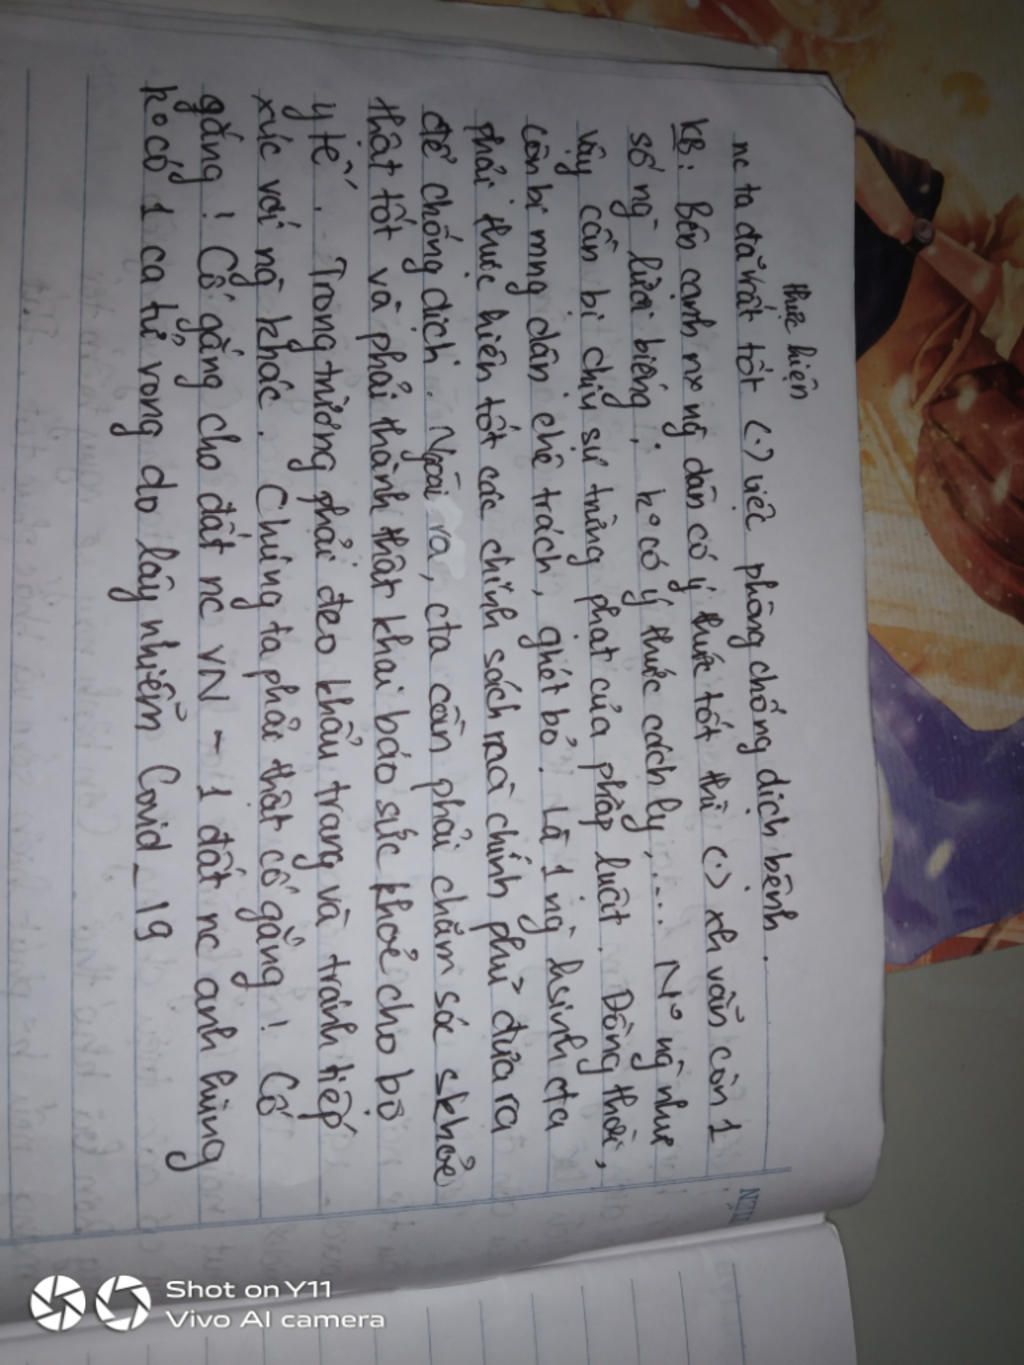 thực hiện
nc ta đã rất tốt (.) việc phòng chống dịch bệnh.
KB: Bên cạnh nx ng dân có ý thức tốt thì (.) xh vẫn còn 1
số ng̀ lười biếng, ko có ý thức cách ly, ... No ng̀ như
vậy cần bị chịu sự trừng phạt của pháp luật. Đồng thời,
còn bị mng dân chê trách, ghét bỏ. Là 1 ng̀ hsinh cta
phải thực hiện tốt các chính sách mà chính phủ đưa ra
để chống dịch. Ngoài ra, cta cần phải chăm sóc skhoẻ
thật tốt và phải thành thật khai báo sức khoẻ cho bộ
y tế. Trong trường phải đeo khẩu trang và tránh tiếp
xúc với ng̀ khác. Chúng ta phải thật cố gắng! Cố
gắng! Cố gắng cho đất nc VN - 1 đất nc anh hùng
ko có 1 ca tử vong do lây nhiễm Covid_19
Shot on Y11
Vivo AI camera